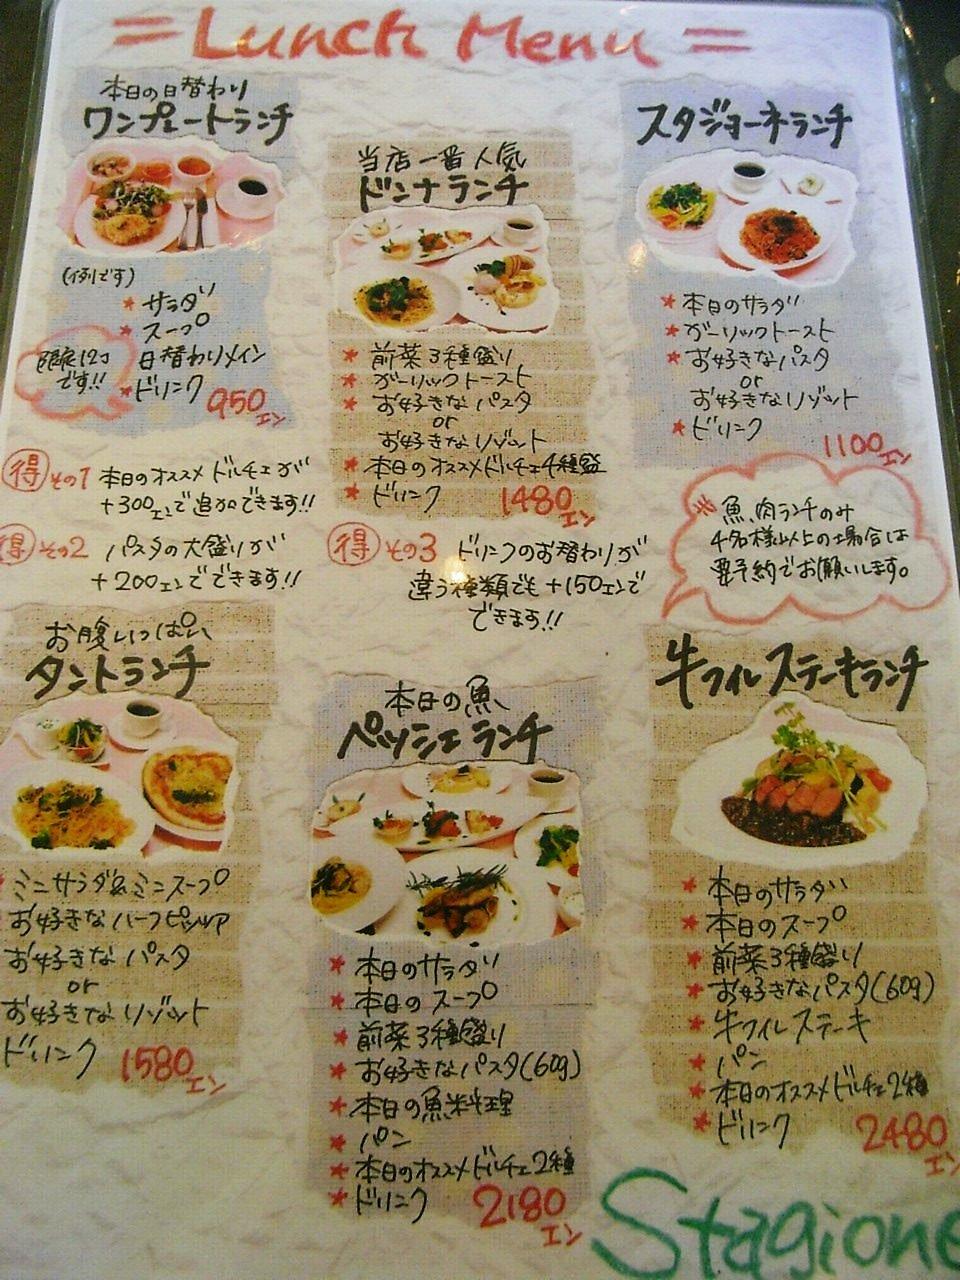 = Lunch Menu =
本日の日替わり
ワンプレートランチ
(例です)
★サラダ
★スープ
日替わりメイン
★ドリンク
限定12コ
です!!
950エン
当店一番人気
ドンナランチ
★前菜3種盛り
★ガーリックトースト
★お好きなパスタ
or
お好きなリゾット
★本日のオススメドルチェ4種盛
★ドリンク
1480エン
スタジョーネランチ
★本日のサラダ
★ガーリックトースト
★お好きなパスタ
or
お好きなリゾット
★ドリンク
1100エン
得 その1 本日のオススメドルチェが
+300エンで追加できます!!
得 その2 パスタの大盛りが
+200エンでできます!!
得 その3 ドリンクのお替わりが
違う種類でも+150エンで
できます!!
※魚、肉ランチのみ
4名様以上の場合は
要予約でお願いします。
お腹いっぱい
タントランチ
ミニサラダ&ミニスープ
お好きなハーフピッツァ
お好きなパスタ
or
お好きなリゾット
ドリンク
1580エン
本日の魚
ペッシェランチ
★本日のサラダ
★本日のスープ
★前菜3種盛り
★お好きなパスタ(60g)
★本日の魚料理
★パン
★本日のオススメドルチェ2種
★ドリンク
2180エン
牛フィレステーキランチ
★本日のサラダ
★本日のスープ
★前菜3種盛り
★お好きなパスタ(60g)
★牛フィレステーキ
★パン
★本日のオススメドルチェ2種
★ドリンク
2480エン
Stagione